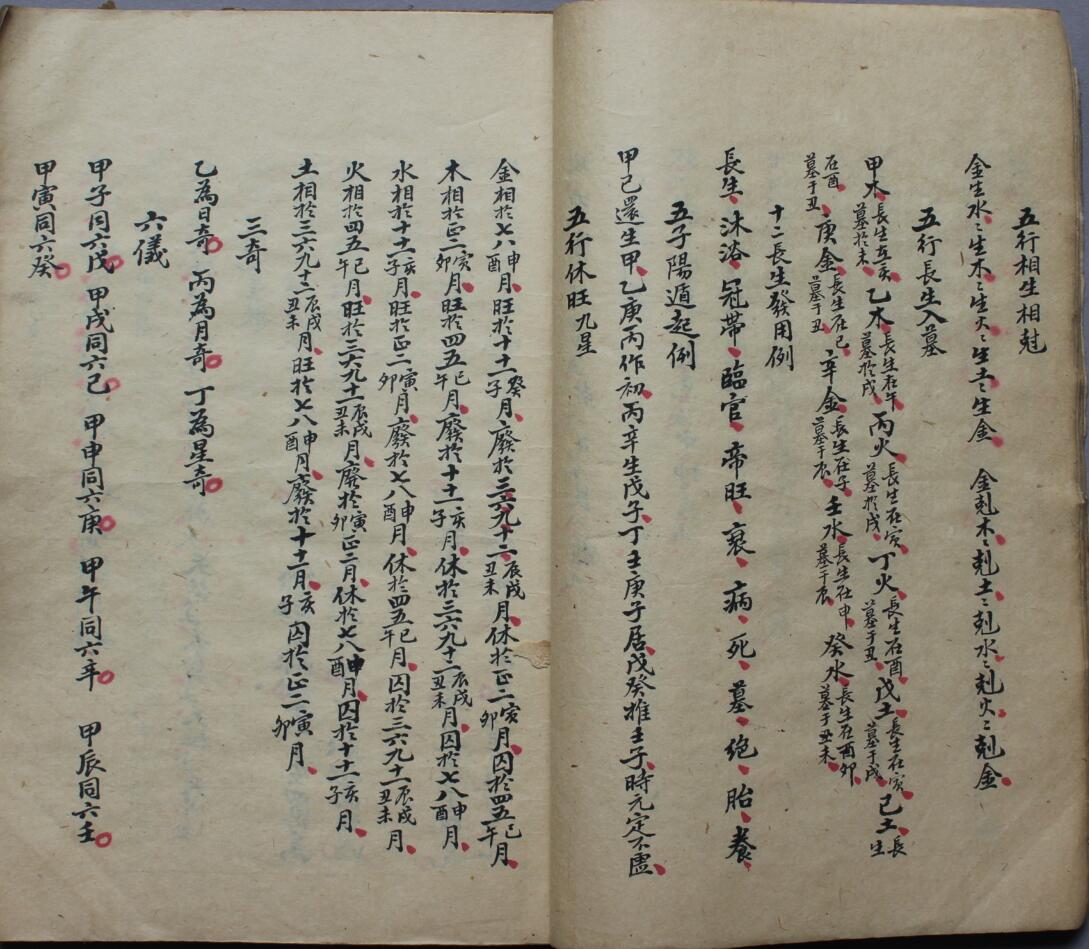 五行相生相尅
金生水〻生木〻生火〻生土〻生金　金尅木〻尅土〻尅水〻尅火〻尅金
五行長生入墓
甲木長生在亥墓於未乙木長生在午墓於戌丙火長生在寅墓於戌丁火長生在酉墓于丑戊土長生在寅墓于戌己土長生
在酉墓于丑庚金長生在巳墓于丑辛金長生在子墓于辰壬水長生在申墓于辰癸水長生在酉卯墓于丑未
十二長生發用例
長生沐浴冠帶臨官帝旺衰病死墓絕胎養
五子陽遁起例
甲己還生甲乙庚丙作初丙辛生戊子丁壬庚子居戊癸推壬子時元定不虛
五行休旺九星
金相於七八申酉月旺於十十一癸子月廢於三六九十二辰戌丑未月休於正二寅卯月囚於四五巳午月
木相於正二寅卯月旺於四五巳午月廢於十十一亥子月休於三六九十二辰戌丑未月囚於七八申酉月
水相於十十一亥子月旺於正二寅卯月廢於七八申酉月休於四五巳午月囚於三六九十二辰戌丑未月
火相於四五巳午月旺於三六九十二辰戌丑未月廢於寅卯正二月休於七八申酉月囚於十十一亥子月
土相於三六九十二辰戌丑未月旺於七八申酉月廢於十十一月亥子囚於正二寅卯月
三奇
乙為日奇　丙為月奇　丁為星奇
六儀
甲子同六戊　甲戌同六己　甲申同六庚　甲午同六辛　甲辰同六壬
甲寅同六癸